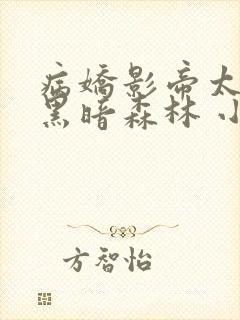 病嬌影帝太
黑暗森林 小
方智怡